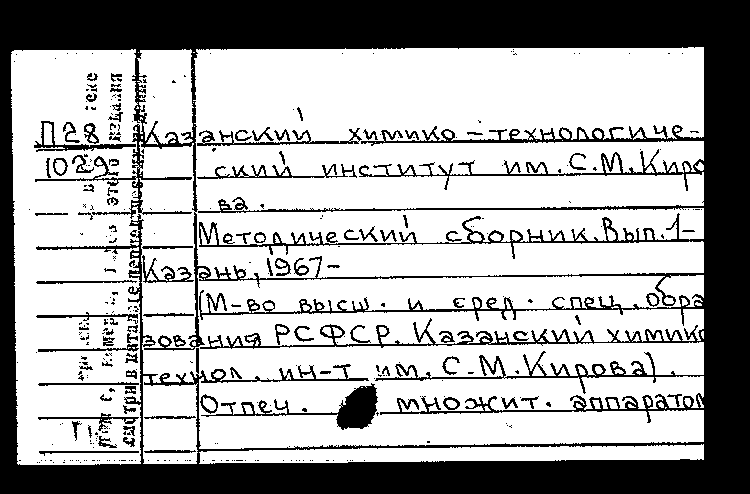 П28 Казанский химико-технологиче-
1029 ский институт им. С.М. Киро
ва.
Методический сборник. Вып. 1-
Казань, 1967-
(М-во высш. и сред. спец. обра
зования РСФСР. Казанский химико
технол. ин-т им. С.М. Кирова).
Отпеч. множит. аппаратом
смотри в каталоге периодических изданий
этого издания